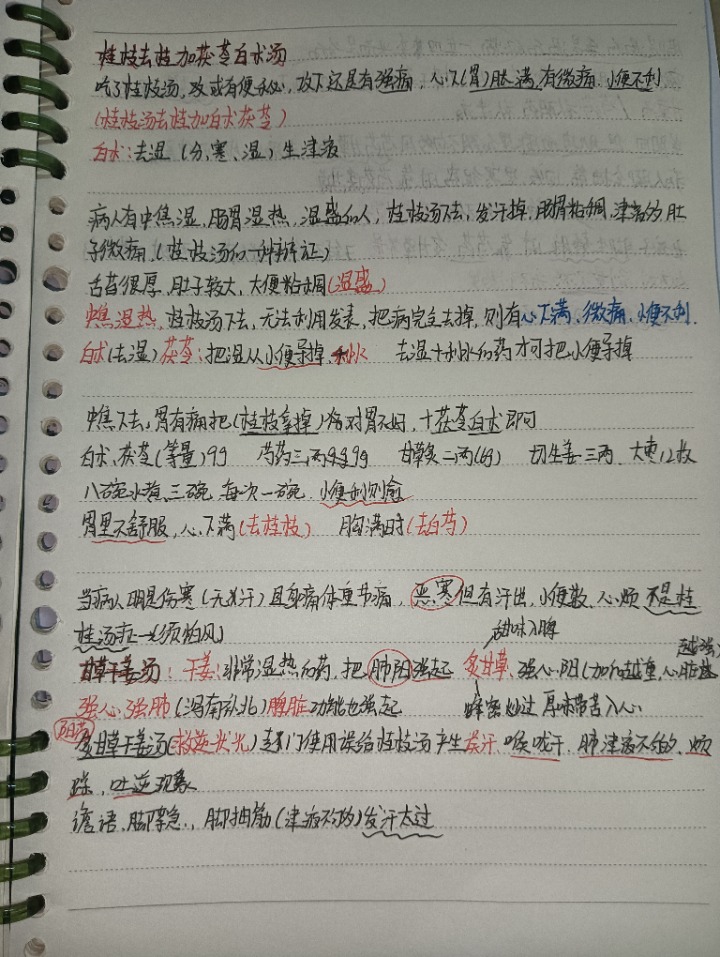 桂枝去桂加茯苓白术汤
吃了桂枝汤,攻或有便秘,攻下还是有强痛,心下(胃)胀满有微痛,小便不利
(桂枝汤去桂加白术茯苓)
白术:去湿(分、寒、湿)生津液
病人有中焦湿,肠胃湿热,湿盛的人,桂枝汤下去,发汗掉,肠胃粘稠,津液的,肚
子微痛,(桂枝汤的一种辨证)
舌苔很厚,肚子较大,大便粘稠(湿盛)
中焦湿热,桂枝汤下去,无法利用发表,把病完全去掉,则有心下满、微痛、小便不利.
白术(去湿)茯苓:把湿从小便导掉,利水 去湿+利水的药才可把小便导掉
中焦下去,胃有痛把(桂枝拿掉)怕对胃不好,+茯苓白术即可
白术、茯苓(等量)9g 芍药三两9g 甘草炙二两(6g) 切生姜三两、大枣12枚
八碗水煮三碗,每次一碗,小便利则愈
胃里不舒服,心下满(去桂枝) 胸满时(去白芍)
当病人明是伤寒(无汗)且身痛体重节痛,恶寒但有汗出,小便数、心烦 不是桂
枝汤症-必须怕风」
甜味入脾
甘草干姜汤:干姜:非常湿热的药,把肺阳强起 炙甘草、强心阳(加的越重,心脏越
越强)
强心强肺(泻南补北)脾脏功能也强起 蜂蜜炒过 厚味带苦入心
炙甘草干姜汤(救逆状况)专门使用误给桂枝汤产生误汗 喉咙干、肺津液不够的、烦
躁、吐逆现象
谵语、脚挛急、,脚抽筋(津液不够)发汗太过